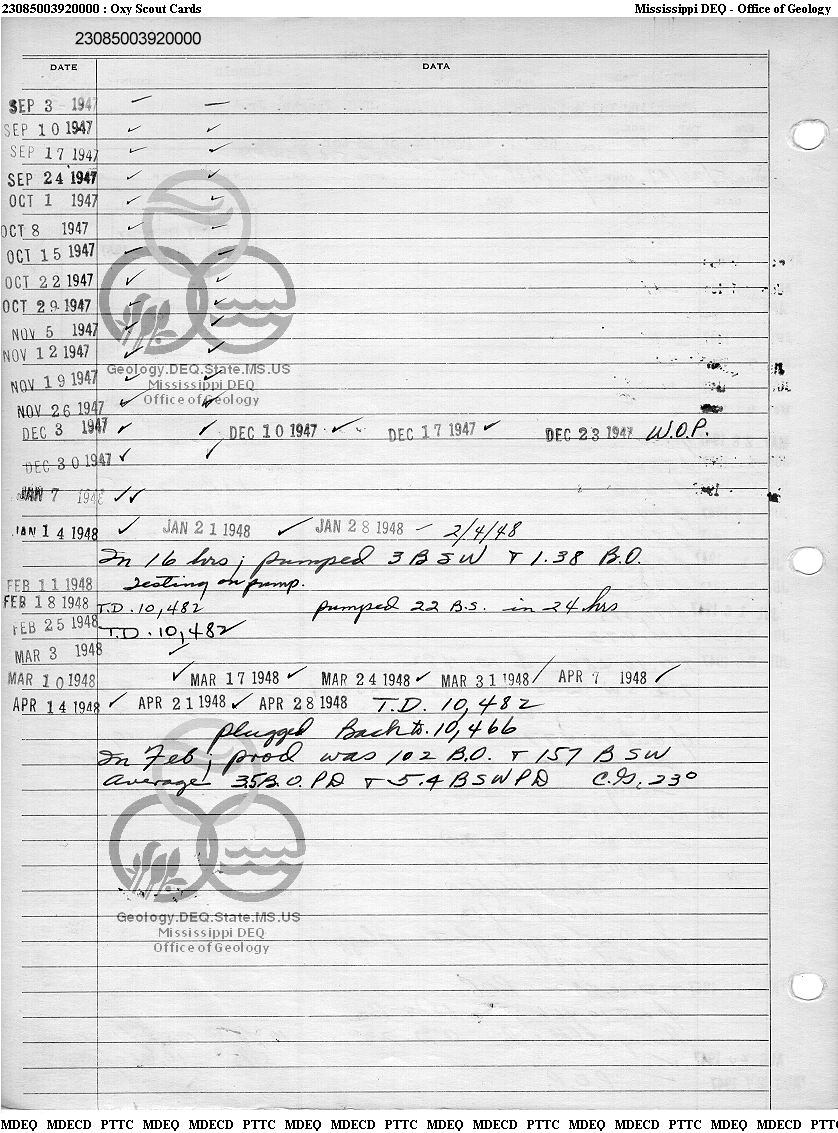 23085003920000 : Oxy Scout Cards Mississippi DEQ - Office of Geology
23085003920000
DATE DATA
SEP 3 1947 — —
SEP 10 1947 ✓ ✓
SEP 17 1947 ✓ ✓
SEP 24 1947 ✓ ✓
OCT 1 1947 ✓ ✓
OCT 8 1947 ✓ —
OCT 15 1947 — —
OCT 22 1947 ✓ ✓
OCT 29 1947 ✓ ✓
NOV 5 1947 ✓ ✓
NOV 12 1947 ✓ ✓
Geology.DEQ.State.MS.US
NOV 19 1947 ✓ ✓
Mississippi DEQ
Office of Geology
NOV 26 1947 ✓ ✓
DEC 3 1947 ✓ ✓ DEC 10 1947 ✓ DEC 17 1947 ✓ DEC 23 1947 W.O.P.
DEC 30 1947 ✓ ✓
JAN 7 1948 ✓✓
JAN 14 1948 ✓ JAN 21 1948 ✓ JAN 28 1948 — 2/4/48
In 16 hrs; pumped 3 B SW & 1.38 B.O.
FEB 11 1948 Testing on pump.
FEB 18 1948 T.D. 10,482 pumped 22 B.S. in 24 hrs
FEB 25 1948 T.D. 10,482 ✓
MAR 3 1948 ✓
MAR 10 1948 ✓ MAR 17 1948 ✓ MAR 24 1948 ✓ MAR 31 1948 / APR 7 1948 ✓
APR 14 1948 ✓ APR 21 1948 ✓ APR 28 1948 T.D. 10,482
plugged Back to 10,466
In Feb; prod was 102 B.O. & 157 B SW
Average 3.5 B.O. PD & 5.4 B SW PD C.G. 23°
Geology.DEQ.State.MS.US
Mississippi DEQ
Office of Geology
MDEQ MDECD PTTC MDEQ MDECD PTTC MDEQ MDECD PTTC MDEQ MDECD PTTC MDEQ MDECD PTTC MDEQ MDECD PTT